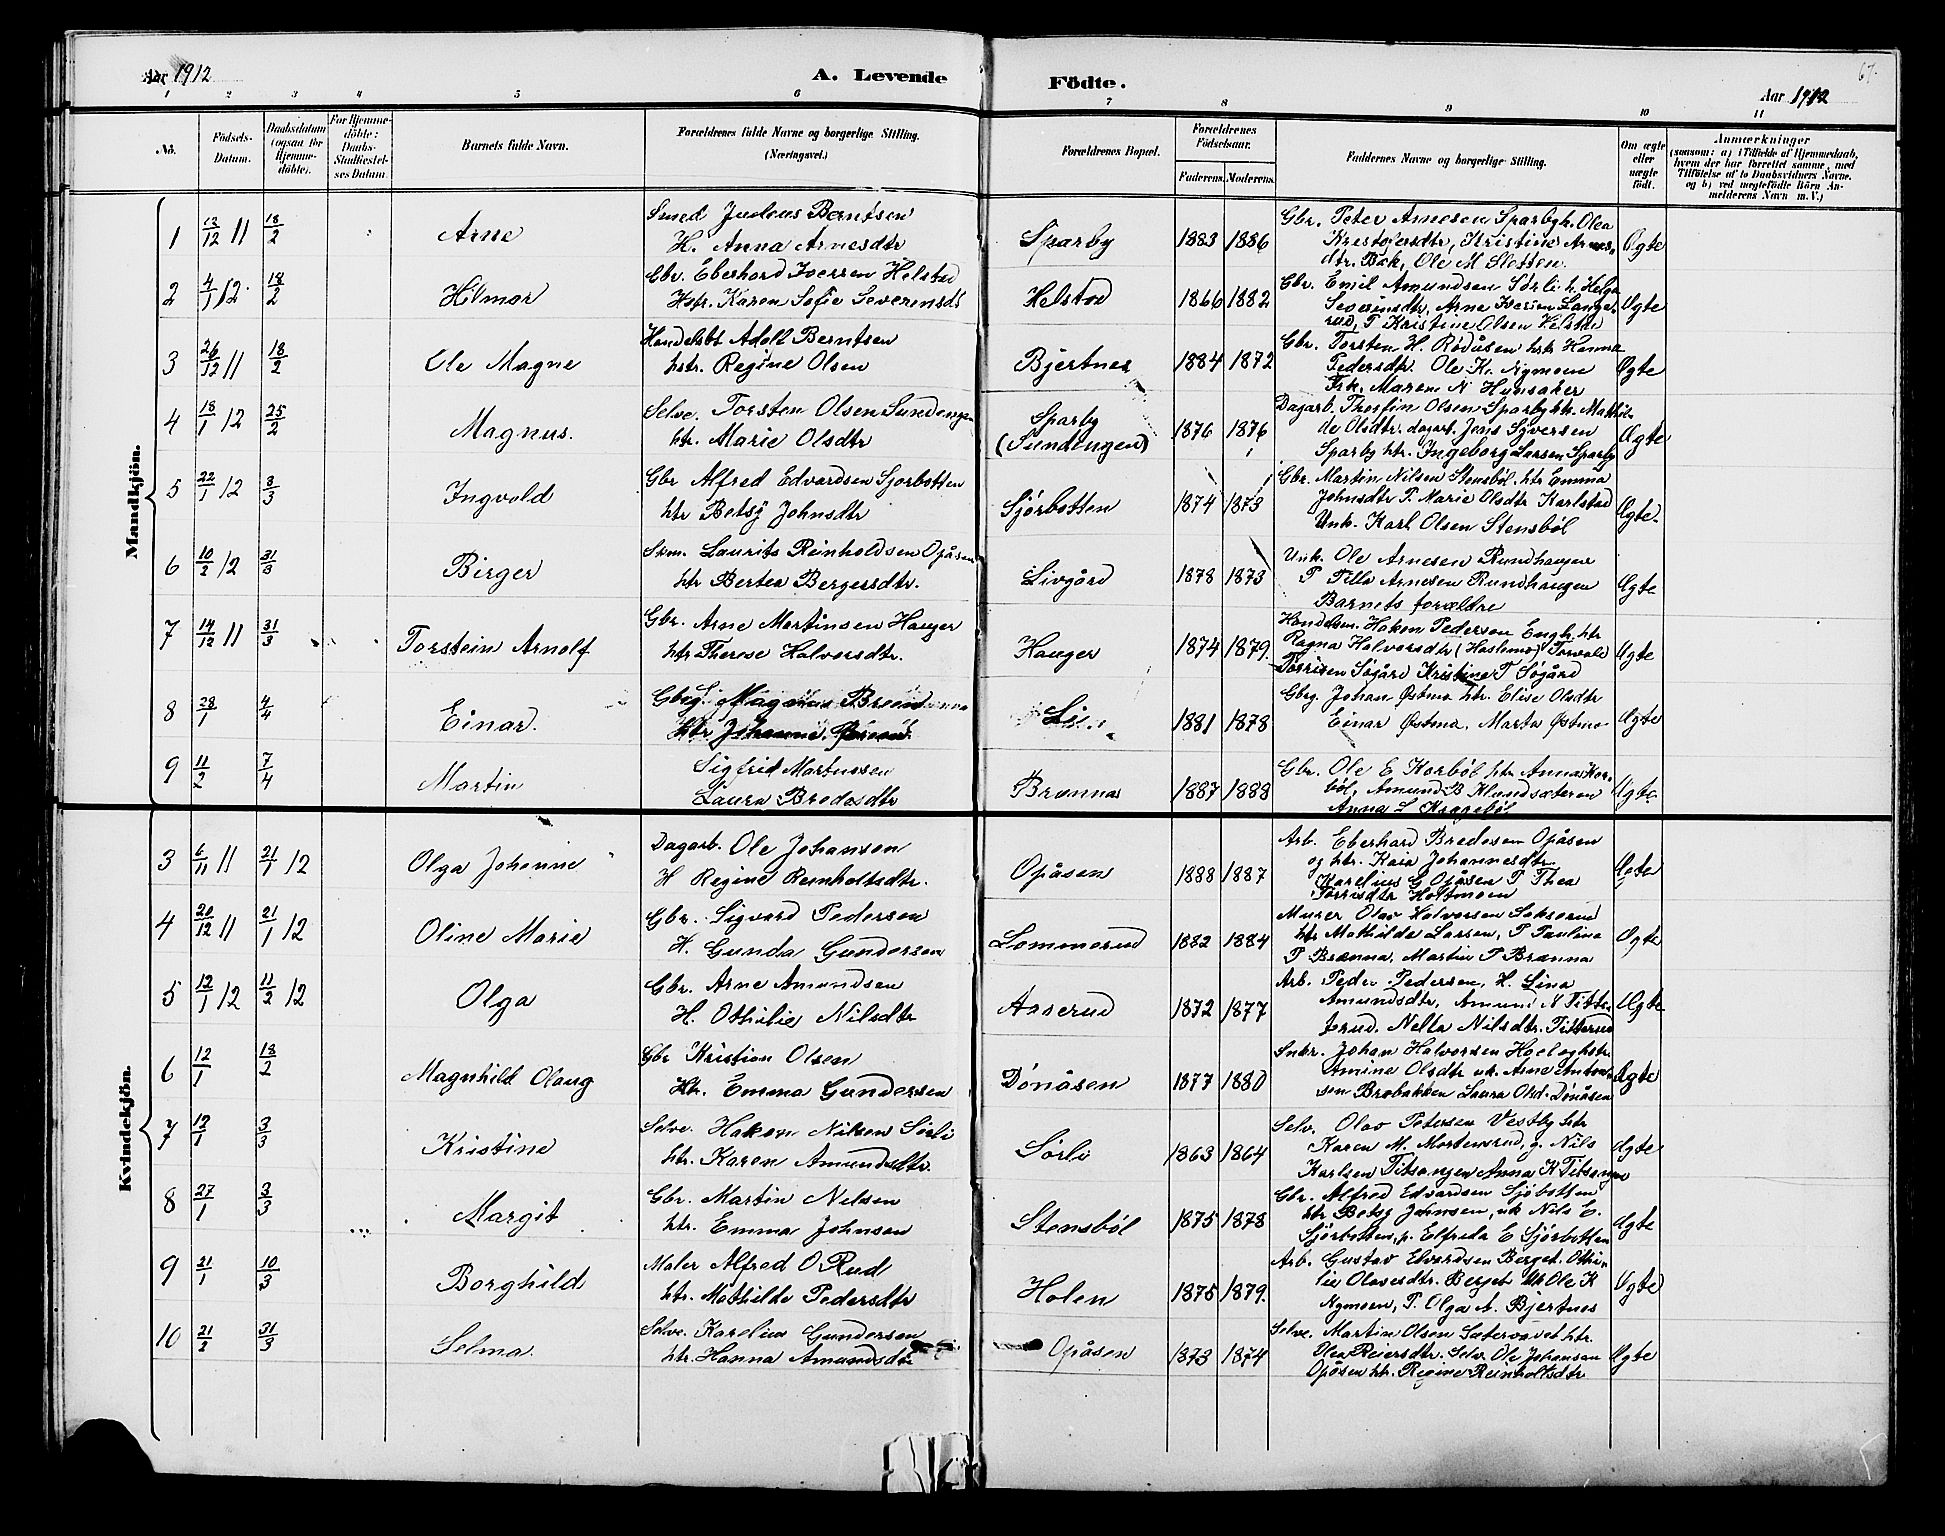 Aar 1912
A. Levende
Födte.
Aar 1912
67.
1 2 3 4 5 6 7 8 9 10 11
No.
Födsels-
Datum.
Daabsdatum
(ogsaa for
Hjemme-
döbte).
For Hjemme-
döbte:
Daabs-
Stadfæstel-
ses Datum.
Barnets fulde Navn.
Forældrenes fulde Navne og borgerlige Stilling.
(Næringsvei.)
Forældrenes Bopæl.
Forældrenes
Födselsaar.
Faderens. Moderens.
Faddernes Navne og borgerlige Stilling.
Om ægte
eller
uægte
födt.
Anmærkninger
(saasom: a) i Tilfælde af Hjemmedaab,
hvem der har forrettet samme, med
Tilföielse af to Daabsvidners Navne,
og b) ved uægtefödte Börn An-
melderens Navn m. V.)
Mandkjön.
1 13/12 11 18/2 Arne
Smed Julius Berntsen
H. Anna Arnesdtr
Sparby 1883 1886
Gbr. Peter Arnesen Sparby h. Olea
Kristofersdtr, Kristine Arnes-
dtr. Bak, Ole M Sletten
Ægte
2 4/1 12 18/2 Hilmar
Gbr. Eberhard Iversen Helstad
Hstr. Karen Sofie Severinsdt
Helstad 1866 1882
Gbr. Emil Amundsen Sørli h. Helga
Severinsdtr, Arne Iversen Lange-
rud, P Kristine Olsen Helstad
Ægte
3 26/12 11 18/2 Ole Magne
Handelsbt Adolf Berntsen
hstr. Regine Olsen
Bjertnes 1884 1872
Gbr. Torsten H. Rødåsen hstr Hanna
Pedersdtr. Ole K. Nymoen
Frk. Maren N Hunsaker
Ægte
4 18/1 12 25/2 Magnus.
Selve. Torsten Olsen Sundengen
htr. Marie Olsdtr
Sparby
(Sundengen) 1876 1876
Dagarb. Thorfin Olsen Sparby htr. Mathil-
de Olsdtr. dagarb. Jens Syversen
Sparby htr. Ingeborg Larsen Sparby
Ægte
5 22/1 12 3/3 Ingvald
Gbr Alfred Edvardsen Sjørbotten
htr Betsy Johnsdtr
Sjørbotten 1874 1873
Gbr. Martin Nilsen Stensbøl. htr Emma
Johnsdtr P. Marie Olsdtr Karlstad
Unk. Karl Olsen Stensbøl
Ægte.
6 10/2 12 31/3 Birger
Skm. Laurits Reinholdsen Opåsen
htr Bertea Bergersdtr.
Livgård 1878 1873
Unk. Ole Arnesen Rundhaugen
P Tilla Arnesen Rundhaugen
Barnets forældre
Ægte
7 14/12 11 31/3 Torstein Arnolf
Gbr. Arne Martinsen Hauger
htr Therese Halvorsdtr.
Hauger 1874 1879.
Handelsm. Hakon Pedersen Engh. htr
Ragna Halvorsdtr (Haslemo) Torvald
Torrisen Søgård Kristine T Søgård
Ægte
8 28/1 4/4 Einar.
Gbrg. Magnus
htr Johanne
1881 1878
Gbrg Johan Østmo htr. Elise Olsdtr
Einar Østmo. Marta Østmo
Ægte
9 11/2 7/4 Martin
Sigfrid Martinsen
Laura Bredesdtr
Brænna 1887 1888
Gbr. Ole E Korbøl htr Anna Kor-
bøl, Amund B Klundsæteren
Anna L Kragebøl
Ægte
Kvindekjön.
3 6/11 11 21/1 12 Olga Johanne
Dagarb. Ole Johansen
H Regine Reinholtsdtr.
Opåsen 1888 1887
Arb. Eberhard Bredesen Opåsen
og htr. Kaia Johannesdtr
Karelius G Opåsen P Thea
Torrisdtr Holtmoen
Ægte
4 20/12 11 21/1 12 Oline Marie
Gbr. Sigvard Pedersen
H. Gunda Gundersen
Lommerud 1882 1884
Murer Olav Halvorsen Sakserud
htr Mathilde Larsen, P Pauline
P Brænna, Martin P Brænna
Ægte
5 12/1 12 11/2 12 Olga
Gbr. Arne Amundsen
H. Othilie Nilsdtr
Anserud 1872 1877
Arb. Peder Pedersen, H. Lina
Amundsdtr, Amund N Titte-
rud. Nelta Nilsdtr. Titterud
Ægte
6 12/1 18/2 Magnhild Olaug
Gbr Kristian Olsen
Htr. Emma Gundersen
Dønåsen 1877 1880
Snkr. Johan Halvorsen Hoel og hstr.
Amine Olsdtr uk. Arne Anton-
sen Brobakken Laura Olsd. Dønåsen
Ægte
7 12/1 3/3 Kristine
Selve. Hakon Nilsen Sørli
htr. Karen Amundsdtr
Sørli 1863 1864
Selv. Olav Petersen Vestby htr
Karen M. Mortensrud, g. Nils
Karlsen Titsangen Anna K Titsangen
Ægte
8 27/1 3/3 Margit
Gbr. Martin Nilsen
htr. Emma Johnsen
Stensbøl 1875 1878
Gbr. Alfred Edvardsen Sjøbotten
htr Betsy Johnsen, uk Nils E.
Sjørbotten, p. Elfrida E Sjørbotten
Ægte
9 21/1 10/3 Borghild
Maler Alfred O Rud
htr. Mathilde Pedersdtr
Holen 1875 1879.
Arb. Gustav Edvardsen Berget. Othi-
lie Olavesdtr. Berget Uk Ole K
Nymoen, P. Olga A. Bjertnes
Ægte
10 21/2 31/3 Selma.
Selve. Karelius Gundersen
htr. Hanna Amundsdtr
Opåsen 1873 1874
Selve. Martin Olsen Sætervavet htr.
Olea Reiersdtr. Selv. Ole Johansen
Opåsen htr. Regine Reinholtsdtr
Ægte